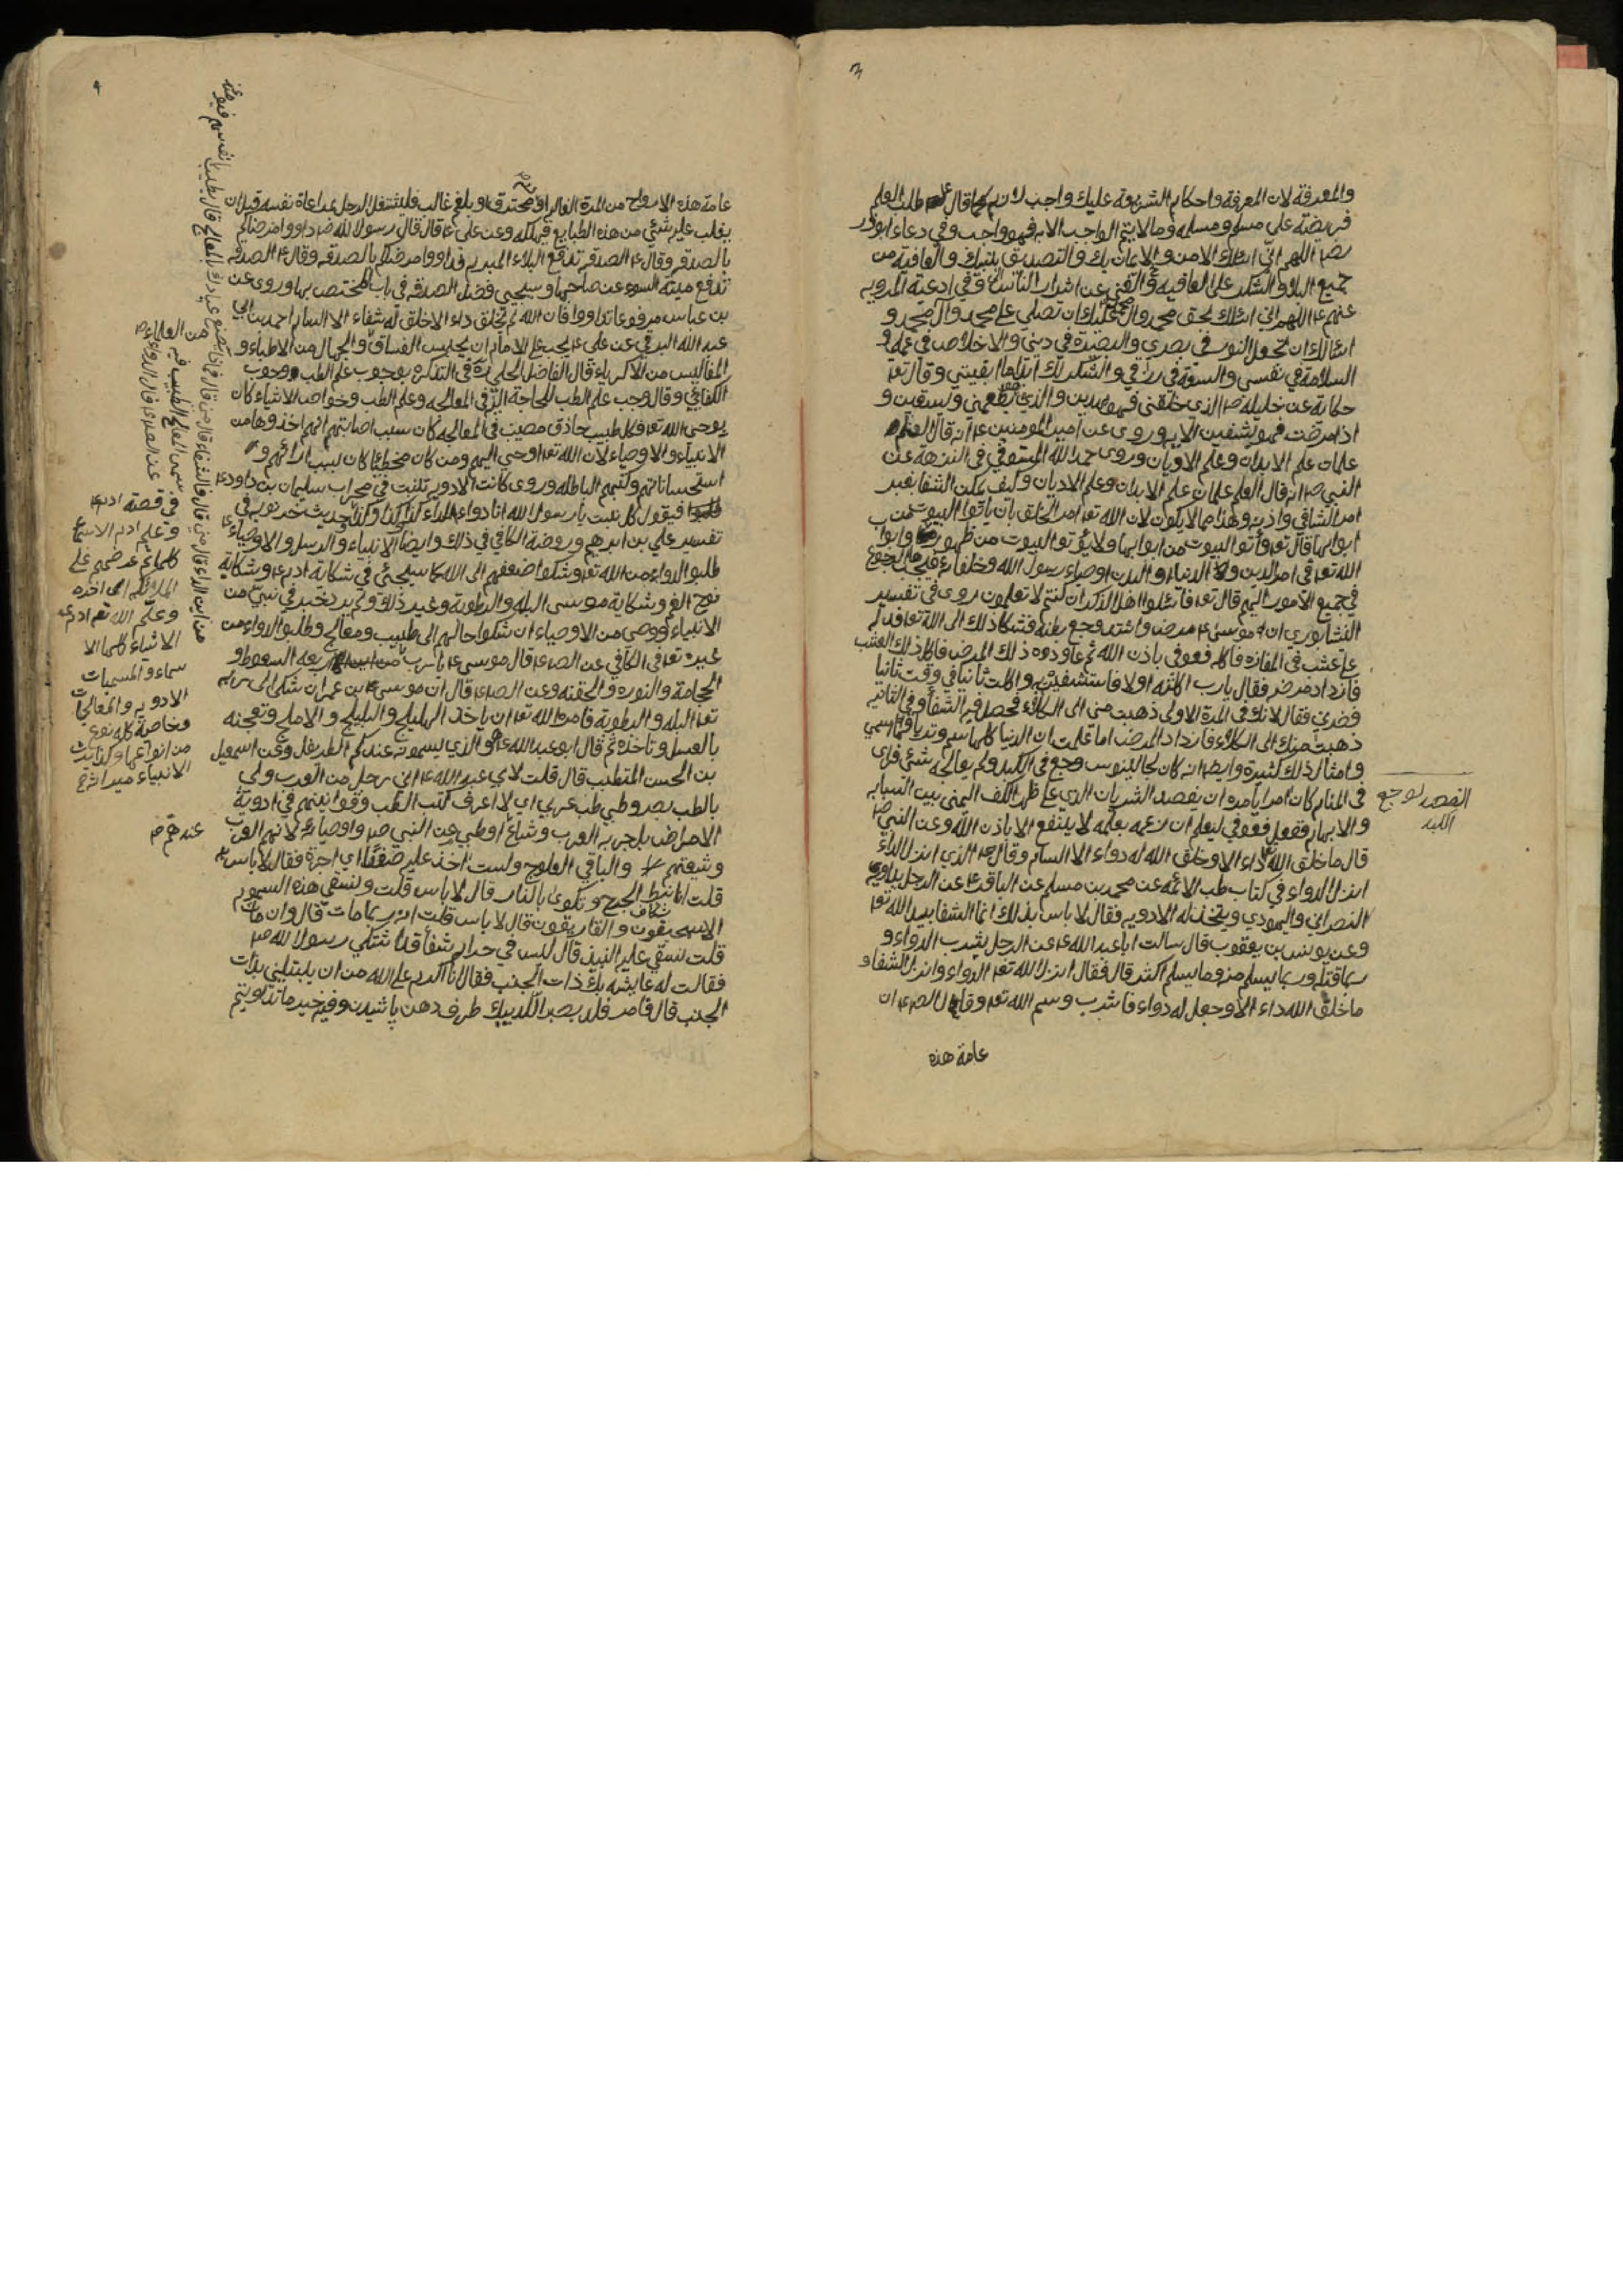 ٣
والمعرفة لان المعرفة واحكام الشريعة عليك واجب لانه كما قال ع طلب العلم
فريضة على مسلم ومسلمه وما لا يتم الواجب الا به فهو واجب وفي دعاء ابوذر
رض اللهم اني اسئلك الامن والايمان بك والتصديق بنبيك والعافية من
جميع البلاء والشكر على العافية والغنى عن اشرار الناس وفي ادعية المروية
عنهم ع اللهم اني اسئلك بحق محمد وال محمد عليك ان تصلي على محمد وآل محمد و
اسئالك ان تجعل النور في بصري والبصيرة في ديني والاخلاص في عملي و
السلامة في نفسي والسعة في رزقي والشكر لك ابدا ما ابقيتني وقال تعا
حكاية عن خليله ص الذي خلقني فهو يهدين والذي هو يطعمني ويسقين و
اذا مرضت فهو يشفين الاية وروى عن امير المومنين ع انه قال العلم
علمان علم الابدان وعلم الاديان وروى حمد الله المستوفي في النزهة عن
النبي ص انه قال العلم علمان علم الابدان وعلم الاديان وكيف يمكن الشفا بغير
امر الشافي واذنه وهذا مما لا يكون لان الله تعا امر الخلق بان ياتوا البيوت من
ابوابها قال تعا وأتوا البيوت من ابوابها ولا يؤتوا البيوت من ظهورها وابواب
الله تعا في امر الدين والدنيا والبدن اوصياء رسول الله وخلفاءه فيجب الرجوع
في جميع الامور اليهم قال تعا فاسئلوا اهل الذكر ان كنتم لا تعلمون روى في تفسير
النيشابوري ان موسى ع مرض واشتد وجع بطنه فشكا ذلك الى الله تعا فدله
على عشب في المفازة فاكله فعوفي باذن الله ثم عاوده ذلك المرض فاكل ذلك العشب
فازداد مرضه فقال يارب اكلته اولا فاستشفيت به واكلت ثانيا في وقت ثانيا
فضرني فقال لانك في المرة الاولى ذهبت مني الى الكلاء فحصل فيه الشفأ وفي الثانية
ذهبت منك الى الكلاء فازداد المرض اما علمت ان الدنيا كلها سم وترياقها اسمي
وامثال ذلك كثيرة وايضا انه كان لجالينوس وجع في الكبد ولم يعالجه شئ فراى
في المنام كان امرا يامره ان يفصد الشريان الذي على ظهر الكف اليمنى بين السبابه
والابهام ففعل فعوفي ليعلم ان زعمه بعلمه لا ينتفع الا باذن الله وعن النبي ص
قال ما خلق الله داء الا وخلق الله له دواء الا السام وقال ص الذي انزل الداء
انزل الدواء في كتاب طب الائمه عن محمد بن مسلم عن الباقر ع عن الرجل يداويه
النصراني واليهودي ويتخذ له الادويه فقال لا باس بذلك انما الشفا بيد الله تعا
وعن يونس بن يعقوب قال سالت ابا عبد الله ع عن الرجل يشرب الدواء و
ربما قتله وربما يسلم منه وما يسلم اكثر قال فقال انزل الله تعا الدواء وانزل الشفا و
ما خلق الله داء الا وجعل له دواء فاشرب وسم الله تعا وقال الص ع ان
عامة هذه
الفصد لوجع
الكبد
٤
عامة هذه الارواح من المرة الغالبة او دم محترق او بلغم غالب فليشتغل الرجل بمراعاة نفسه قبل ان
يغلب عليه شئي من هذه الطبايع فيهلكه وعن على ع قال قال رسول الله ص داووا مرضاكم
بالصدقه وقال ع الصدقه تدفع البلاء المبرم فداووا مرضاكم بالصدقه وقال ع الصدقه
تدفع ميتة السوء عن صاحبها وسيجئي فضل الصدقه في باب المختص بها وروى عن
بن عباس مرفوعا تداووا فان الله لم يخلق داء الا خلق له شفاء الا السام احمد بن ابي
عبد الله البرقي عن على ع يجب على الامام ان يحبس الفساق والجهال من الاطباء و
المفاليس من الاكرياء قال الفاضل الحلي ره في التذكرة بوجوب علم الطب ووجوب
الكفائي وقال وجب علم الطب للحاجة اليه في المعالجه وعلم الطب وخواص الاشياء كان
بوحي الله تعا فكل طبيب حاذق مصيب في المعالجه كان سبب اصابتهم انهم اخذوها من
الانبياء والاوصياء لان الله تعا اوحى اليهم ومن كان مخطئا كان لسبب ارائهم و
استحساناتهم وكتبهم الباطله وروى كانت الادويه تنبت في محراب سليمان بن داود ع
فيقول كل نبت يا رسول الله انا دواء لداء كذا وكذا كحديث خرنوب في
تفسير علي بن ابرهيم وروضة الكافي في ذلك وايضا الانبياء والرسل والاوصياء ع
طلبو الدواء من الله تعا وشكوا ضعفهم الى الله كما سيجئى في شكاية ادم ع وشكاية
نوح الغم وشكاية موسى البله والرطوبة وغير ذلك ولم يرد خبر في نبي من
الانبياء ووصى من الاوصياء ان شكوا حالهم الى طبيب ومعالج وطلبو الدواء من
غيره تعا في الكافي عن الص ع قال موسى ع يا رب من اين الداء السعوط و
الحجامة والنوره والحقنه وعن الص ع قال ان موسى ع ابن عمران شكى الى ربه
تعا البله والرطوبة فامره الله تعا ان ياخذ الهليلج والبليلج والاملج وتعجنه
بالعسل وتاخذه ثم قال ابو عبد الله ع هو الذي يسمونه عندكم الطريفل وعن اسمعيل
بن الحسن المتطبب قال قلت لابي عبد الله ع اني رجل من العرب ولي
بالطب بصر وطبي طب عربي اي لا اعرف كتب الطب وقوانينهم في ادوية
الامراض بل جربه العرب وشباع او طبي عن النبي ص واوصيائه لانهم العرب
وشيعتهم والباقي العلوج ولست اخذ عليه صفدا اي اجرة فقال لا باس
قلت انا نبط الجرح ونكوى بالنار قال لا باس قلت ونسقي هذه السموم
الاسمحيقون والغاريقون قال لا باس قلت انه ربما مات قال وان مات
قلت نسقي عليه النبيذ قال ليس في حرام شفأ قد اشتكي رسول الله ص
فقالت له عايشه بك ذات الجنب فقال انا اكرم على الله من ان يبتليني بذات
الجنب قال فامر فلد بصبر
في قصة ادم ع
وعلم ادم الاسماء
كلها ثم عرضهم على
الملائكه الى اخره
وعلم الله تعا ادم ع
الاشياء كلها الا
سماء والمسميات
الادويه والمعالجات
وخاصة كله نوع
من انواعها وكذا
الانبياء ميراثه